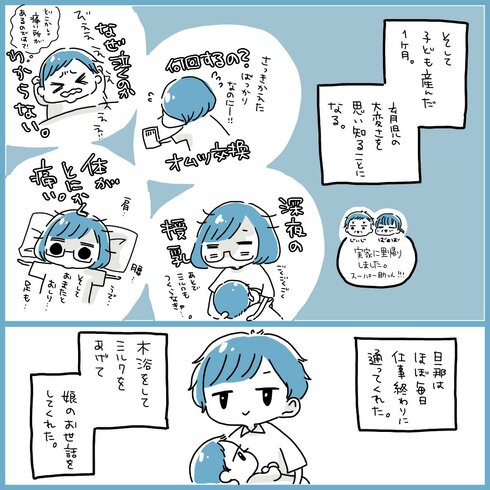 そして
子ども産んだ
1ヶ月。
育児の
大変さを
思い知ることに
なる。
じいじ
ばあば
実家に里帰り
しました。
スーパー助かる!!!
何回するの?
さっきかえた
ばっかり
なのにー!!
オムツ交換
なぜ泣くか
わからない。
どこかに
痛い所が
あるのでは?!
深夜の
授乳
あとで
ミルクも
つくらなきゃ
体が
とにかく
痛い。
肩…
腰…
うで…
そして
おまたと
おしり…
足も…
旦那は
ほぼ毎日
仕事終わりに
通ってくれた。
木浴をして
ミルクを
あげて
娘のお世話を
してくれた。